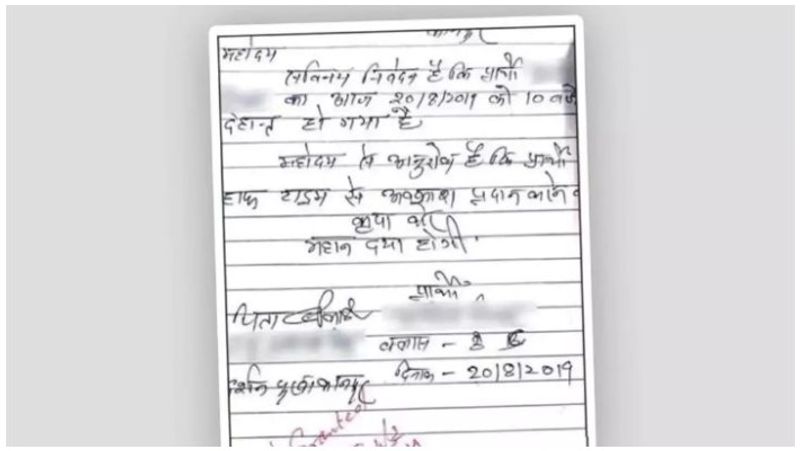 कानपुर
महोदय
सविनय निवेदन है कि प्रार्थी
का आज 20/8/2019 को 10 बजे
देहान्त हो गया है
महोदय से अनुरोध है कि प्रार्थी
हाफ टाइम से अवकाश प्रदान करने क
कृपा करें
महान दया होगी
प्रार्थी
पिता
क्लास - 8
दिनांक - 20/8/2019
Granted